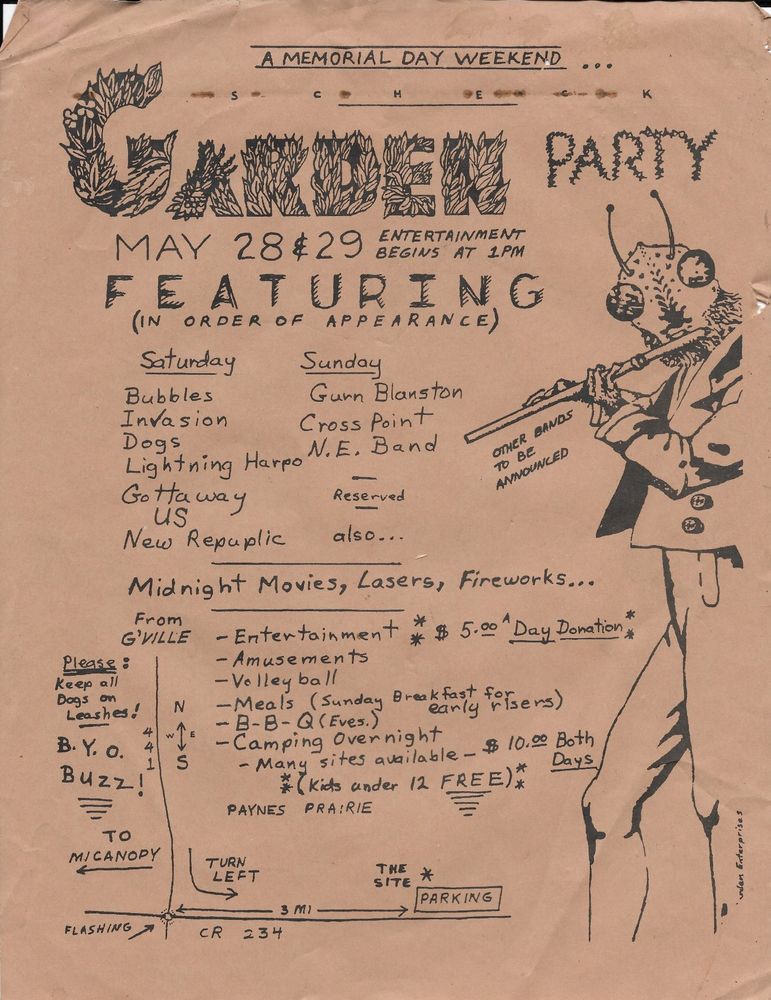 A MEMORIAL DAY WEEKEND ...
S C H E C K
GARDEN PARTY
MAY 28 & 29 ENTERTAINMENT
BEGINS AT 1PM
FEATURING
(IN ORDER OF APPEARANCE)
Saturday
Bubbles
Invasion
Dogs
Lightning Harpo
Gottaway
US
New Repuplic
Sunday
Gurn Blanston
Cross Point
N.E. Band
Reserved
also...
OTHER BANDS
TO BE
ANNOUNCED
Midnight Movies, Lasers, Fireworks...
From
G'VILLE
Please:
Keep all
Dogs on
Leashes!
B.Y.O.
Buzz!
441
N
W E
S
- Entertainment ** $ 5.00 A Day Donation **
- Amusements
- Volleyball
- Meals (Sunday Breakfast for
early risers)
- B-B-Q (Eves.)
- Camping Overnight
- Many sites available - $ 10.00 Both
Days
** (Kids under 12 FREE) **
PAYNES PRAIRIE
TO
MICANOPY
TURN
LEFT
THE
SITE *
PARKING
3 MI
FLASHING
CR 234
Enterprises